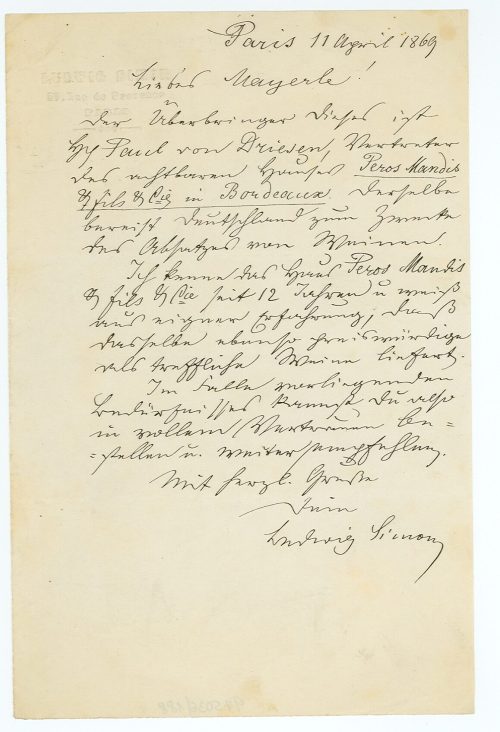 Paris 11 April 1869
Liebes Mayerle!
Der Überbringer dieses ist
H. Paul von Driesen, Vertreter
des achtbaren Hauses Peros Mandis
& fils & Cie in Bordeaux. Derselbe
bereist Deutschland zum Zwecke
des Absatzes von Weinen.
Ich kenne das Haus Peros Mandis
& fils & Cie seit 12 Jahren u weiß
aus eigner Erfahrung, daß
dasselbe ebenso preiswürdige
als treffliche Weine liefert.
Im Falle vorliegenden
Bedürfnisses kannst Du also
in vollem Vertrauen be=
=stellen u. weiterempfehlen.
Mit herzl. Gruße
Dein
Ludwig Simon